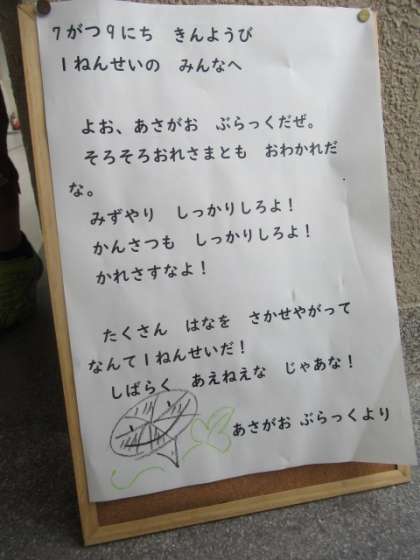 7がつ9にち　きんようび
1ねんせいの　みんなへ
よお、あさがお　ぶらっくだぜ。
そろそろおれさまとも　おわかれだ
な。
みずやり　しっかりしろよ！
かんさつも　しっかりしろよ！
かれさすなよ！
たくさん　はなを　さかせやがって
なんて1ねんせいだ！
しばらく　あえねえな　じゃあな！
あさがお　ぶらっくより